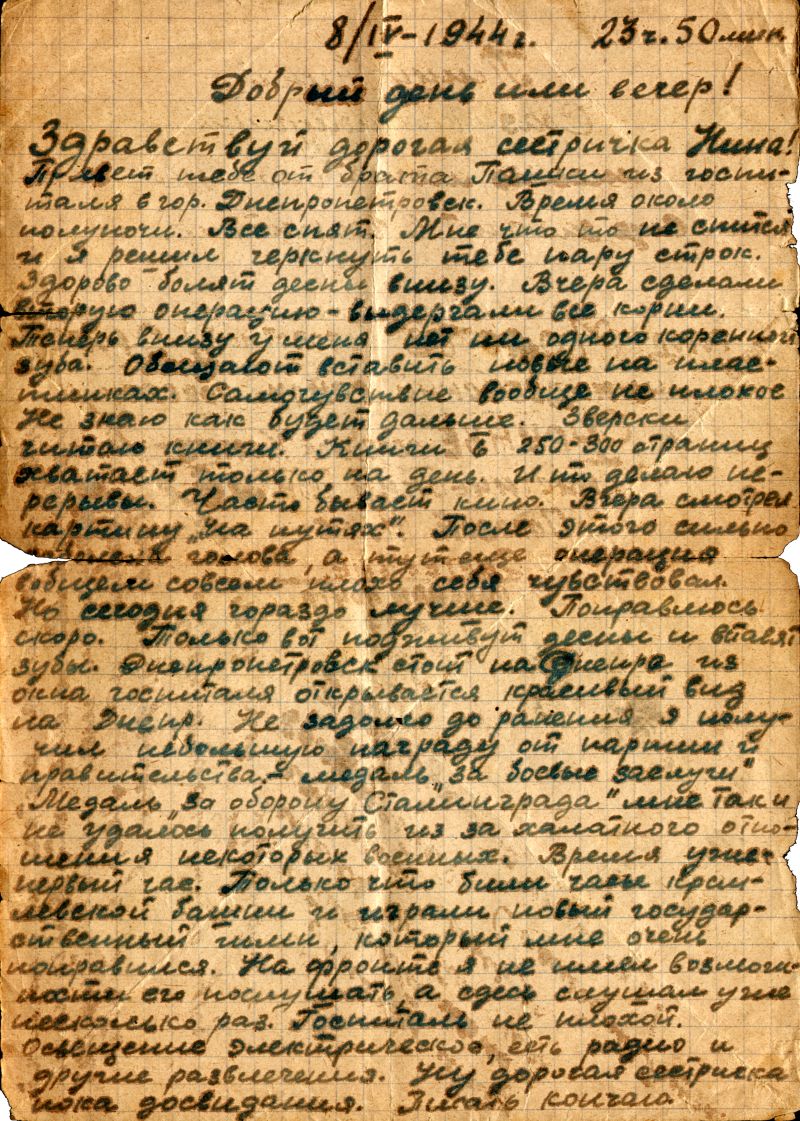 8/IV-1944г. 23ч. 50мин
Добрый день или вечер!
Здравствуй дорогая сестричка Нина!
Привет тебе от брата Пашки из госпи-
таля в гор. Днепропетровск. Время около
полуночи. Все спят. Мне что то не спится
и я решил черкнуть тебе пару строк.
Здорово болят десны внизу. Вчера сделали
вторую операцию - выдергали все корни.
Теперь внизу у меня нет ни одного коренного
зуба. Обещают вставить новые на плас-
тинках. Самочувствие вообще не плохое
Не знаю как будет дальше. Зверски
читаю книги. Книги в 250-300 страниц
хватает только на день. И то делаю пе-
рерывы. Часто бывает кино. Вчера смотрел
картину „на путях". После этого сильно
голова, а тут еще операция
вобщем совсем плохо себя чувствовал.
Но сегодня гораздо лучше. Поправлюсь
скоро. Только вот подживут десны и вставят
зубы. Днепропетровск стоит на Днепре из
окна госпиталя открывается красивый вид
на Днепр. Не задолго до ранения я полу-
чил небольшую награду от партии и
правительства - медаль „за боевые заслуги"
Медаль „За оборону Сталинграда" мне так и
не удалось получить из за халатного отно-
шения некоторых военных. Время уже
первый час. Только что били часы Крем-
левской башни и играли новый государ-
ственный гимн, который мне очень
понравился. На фронте я не имел возмож-
ности его послушать, а здесь слушал уже
несколько раз. Госпиталь не плохой.
Освещение электрическое, есть радио и
другие развлечения. Ну дорогая сестричка
пока досвидания. Писать кончаю